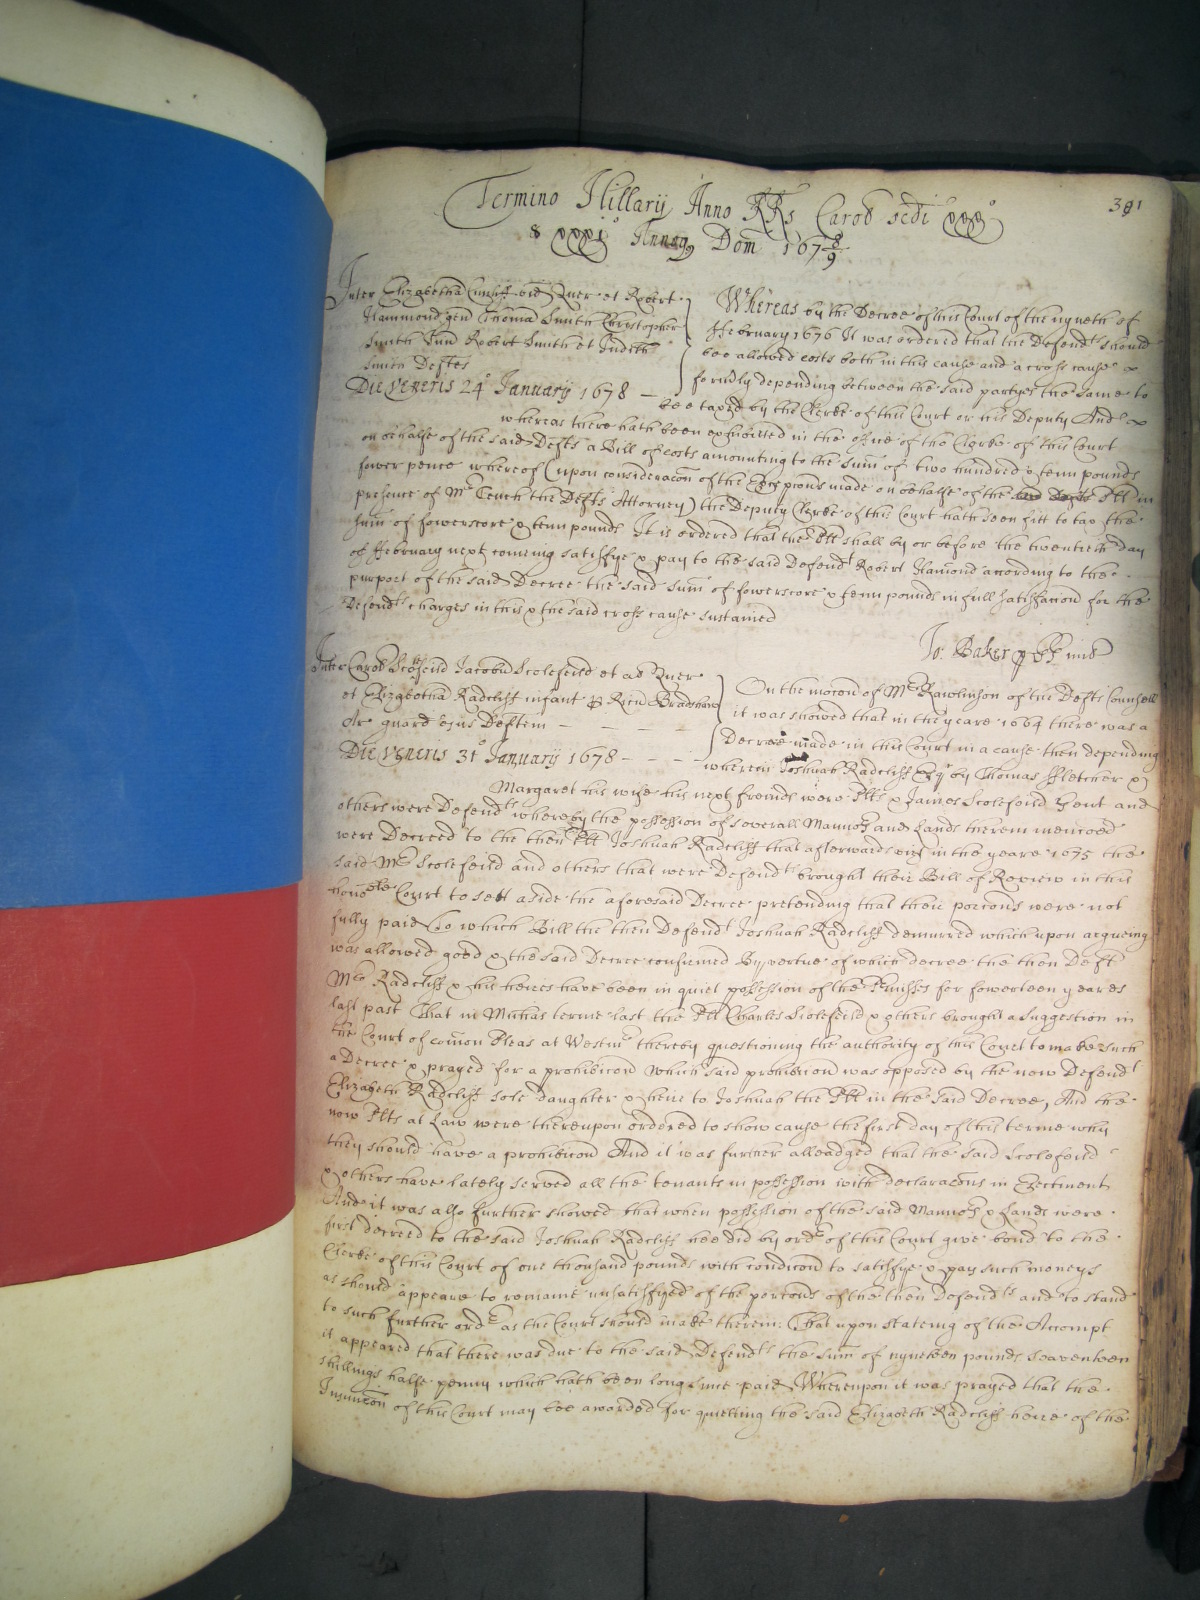 391
Termino Hillarij Anno RRs Carol sedi xxx°
& xxxi° Annoq Dom 1678/9
Inter Elizabetham Cunliff vid Quer et Robert
Hammond gen Thoma Smith Christopher
Smith Jun Robert Smith et Judith
Smith Deftes
Die Veneris 24° January 1678 —
Whereas by the Decree of this Court of the nyneth of
ffebruary 1676 It was ordered that the Defendts should
bee allowed costs both in this cause and a cross cause
formrly depending between the said partyes the same to
bee taxed by the Clerke of this Court or his Deputy And
whereas there hath been exhibitted in the office of the Clerke of this Court
on behalfe of the said Defts a Bill of costs amounting to the sum of two hundred & tenn pounds
fower pence whereof (upon consideracon of the Excepcons made on behalfe of the Plt in
presence of Mr Leuch the Defts Attorney) the Deputy Clerke of this Court hath seen fitt to tax the
sum of fowerscore & tenn pounds It is ordered that the Plt shall by or before the twentieth day
of ffebruary next coming satisfye & pay to the said Defendt Robert Hamond according to the
purport of the said Decree the said sum of fowerscore & tenn pounds in full satisfaccon for the
Defendts charges in this & the said cross cause sustained
Jo: Baker
Inter Carol Scolfeild Jacobu Scolefeild et ad Quer
et Elizabetha Radcliff infant p Ricu Bradshaw
Ar guard ejus Deftem — —
Die Veneris 31° January 1678 - - - -
On the mocon of Mr Rawlinson of the Defts Counsell
it was showed that in the yeare 1664 there was a
Decree made in this Court in a cause then depending
wherein Joshuah Radcliff Esq by Thomas ffletcher &
Margaret his wife his next freinds were Plts & James Scolefeild gent and
others were Defendts whereby the possession of severall Mannors and Lands therein menconed
were Decreed to the then Plt Joshuah Radcliff that afterwards vizt in the yeare 1675 the
said Mr Scolefeild and others that were Defendts brought their Bill of Review in this
honoble Court to sett aside the aforesaid Decree pretending that their porcons were not
fully paid To which Bill the then Defendt Joshuah Radcliff demurred which upon argueing
was allowed good & the said Decree confirmed By vertue of which decree the then Deft
Mr Radcliff & his heires have been in quiet possession of the Pmisses for fowerteen yeares
last past That in Michas terme last the Plt Charles Scolefeild & others brought a suggestion in
the Court of comon Pleas at Westmr thereby questioning the authority of this Court to make such
a Decree & prayed for a prohibicon which said prohibicon was opposed by the now Defendt
Elizabeth Radcliff sole daughter & heire to Joshuah the Plt in the said Decree, And the
now Plts at Law were thereupon ordered to show cause the first day of this terme why
they should have a prohibicon And it was further alleadged that the said Scolefeild
& others have lately served all the tenants in possession with declaracons in Ejectment
And it was also further showed that when possession of the said Mannors & Lands were
first decreed to the said Joshuah Radcliff hee did by ordr of this Court give bond to the
Clerke of this Court of one thousand pounds with condicon to satisfye & pay such moneys
as should appeare to remaine unsatisfyed of the porcons of the then Defendts and to stand
to such further ordr as the Court should make therein: That upon stateing of the Accompt
it appeared that there was due to the said Defendts the sum of nyneteen pounds seaventeen
shillings halfe penny which hath been long since paid Whereupon it was prayed that the
Injuncon of this Court may bee awarded for quietting the said Elizabeth Radcliff heire of the